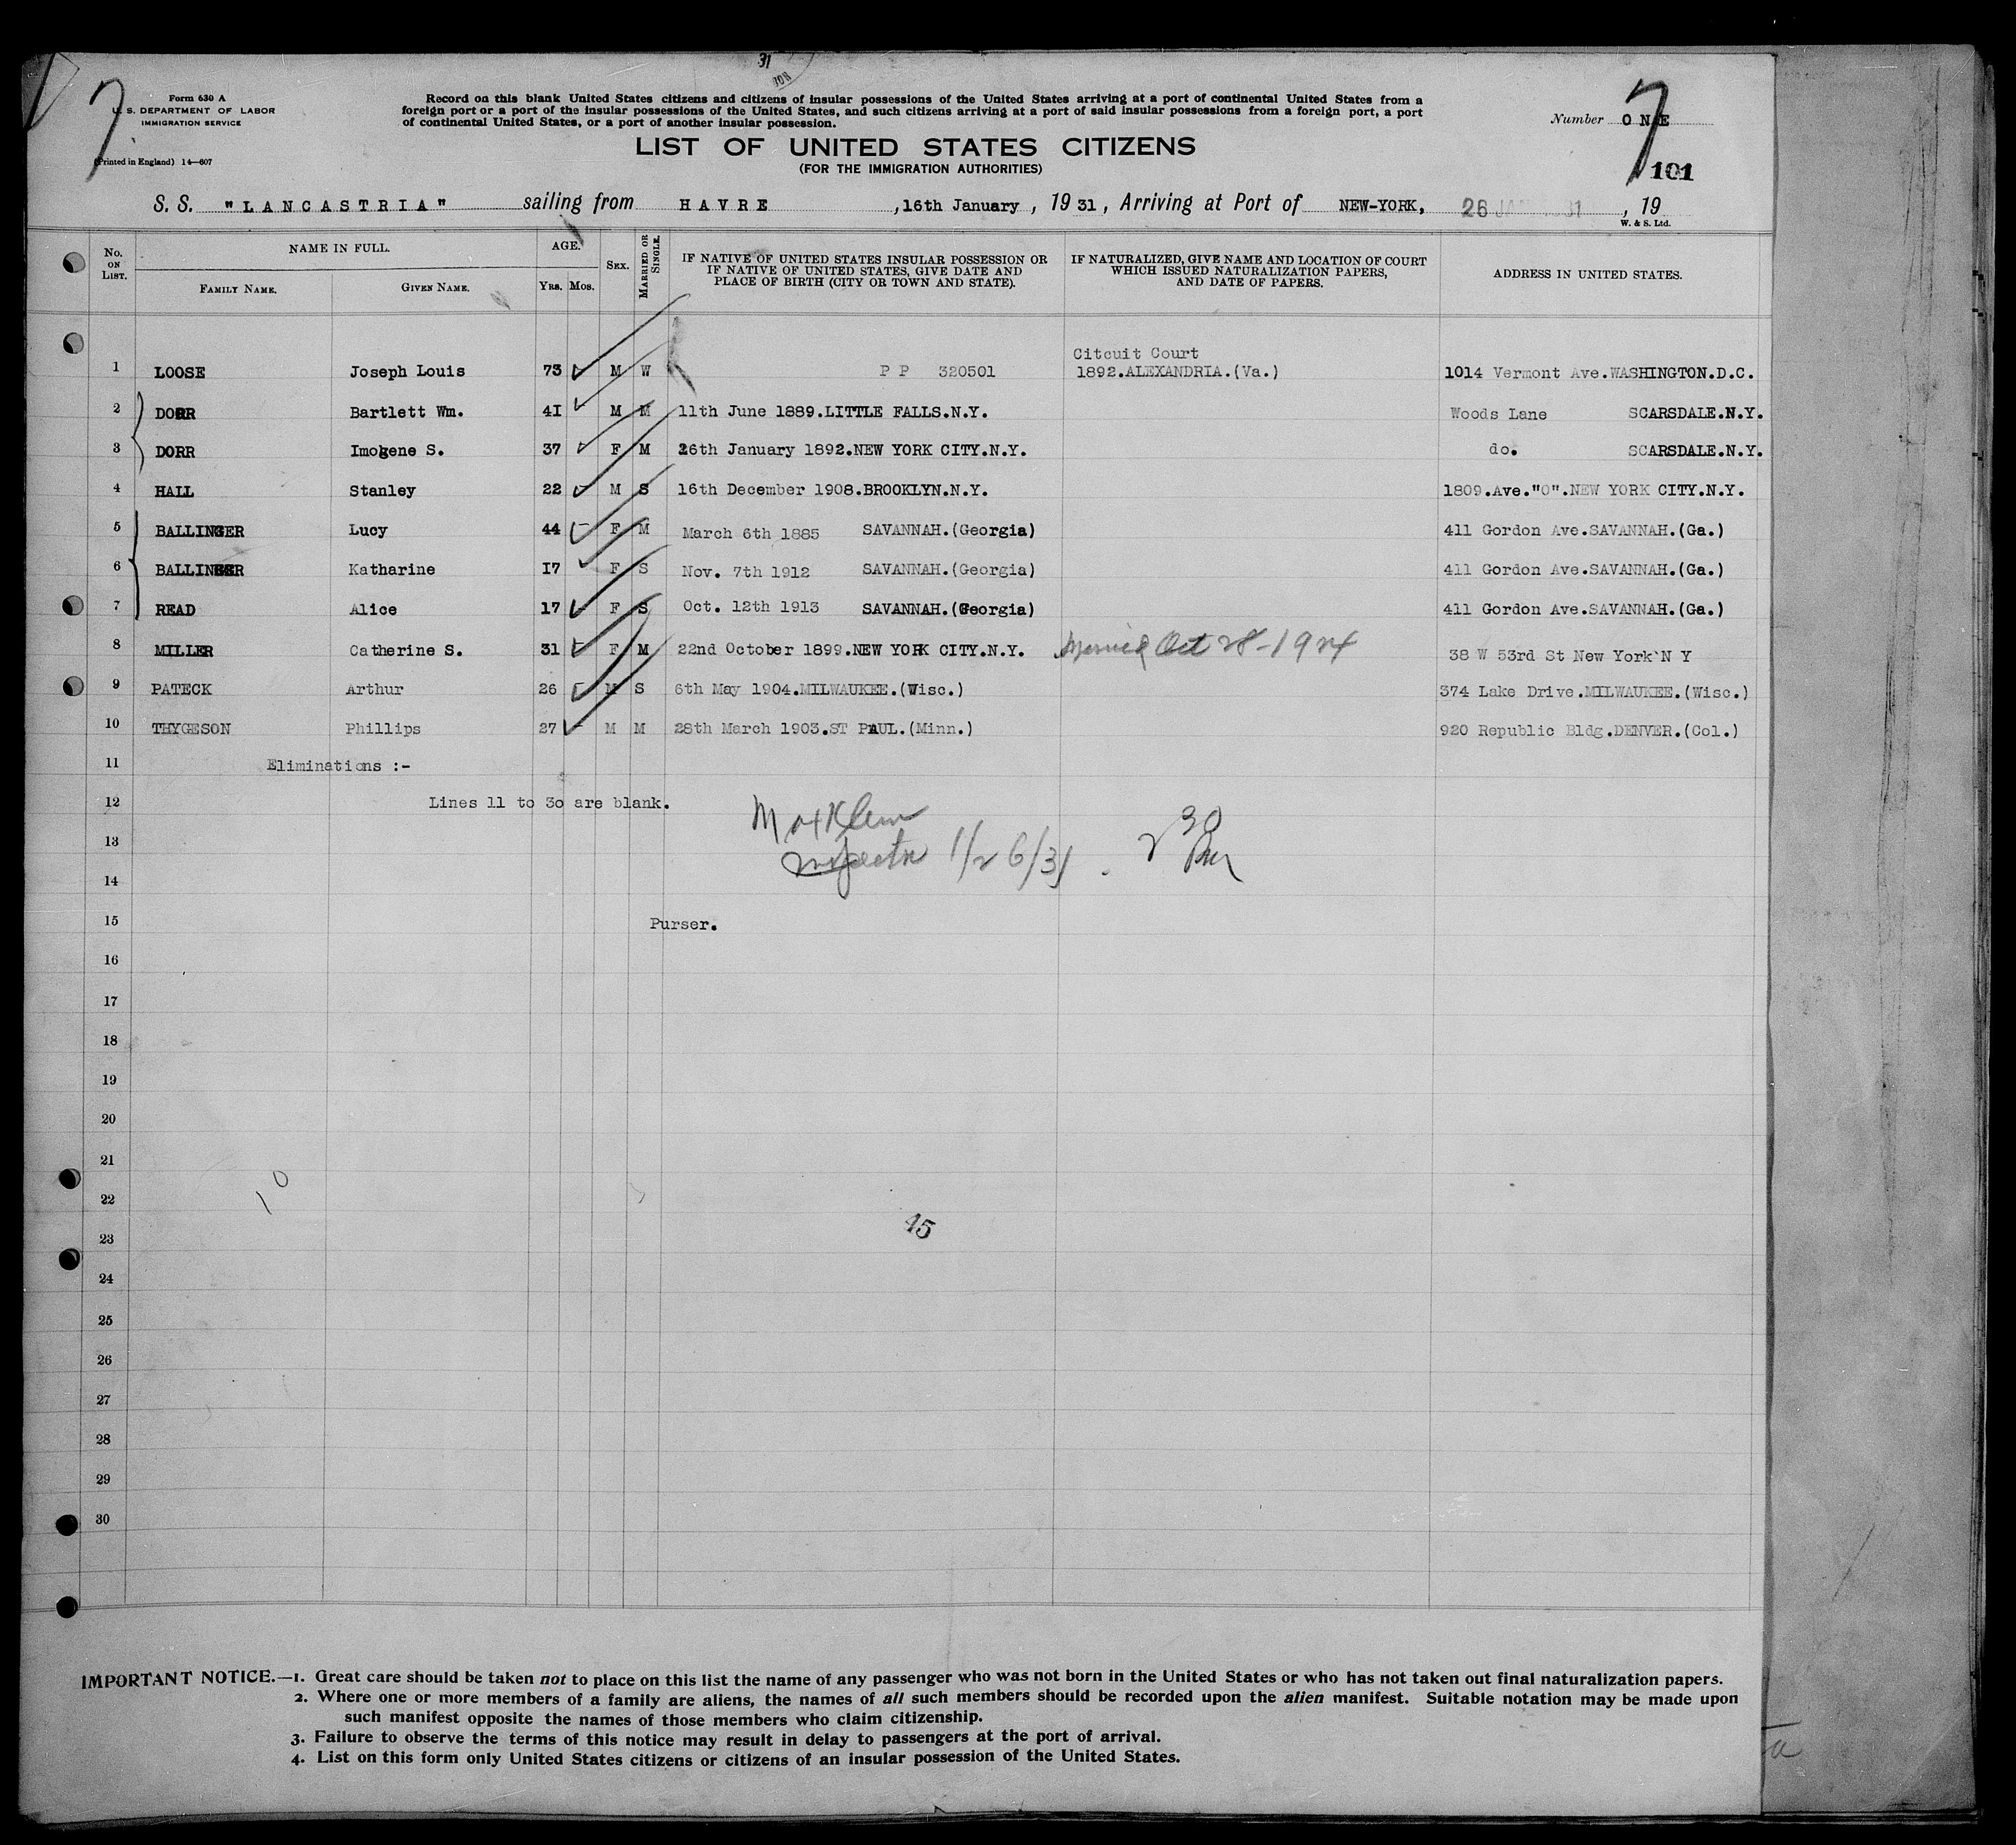 31
Form 630 A
U. S. DEPARTMENT OF LABOR
IMMIGRATION SERVICE
(Printed in England) 14—607
7
Record on this blank United States citizens and citizens of insular possessions of the United States arriving at a port of continental United States from a
foreign port or a port of the insular possessions of the United States, and such citizens arriving at a port of said insular possessions from a foreign port, a port
of continental United States, or a port of another insular possession.
LIST OF UNITED STATES CITIZENS
(FOR THE IMMIGRATION AUTHORITIES)
Number ONE
7
101
S. S. "LANCASTRIA" sailing from HAVRE , 16th January , 19 31 , Arriving at Port of NEW-YORK, 26 JAN 1931 , 19
W. & S. Ltd.
No. ON LIST. NAME IN FULL. FAMILY NAME. GIVEN NAME. AGE. YRS. MOS. SEX. MARRIED OR SINGLE. IF NATIVE OF UNITED STATES INSULAR POSSESSION OR IF NATIVE OF UNITED STATES, GIVE DATE AND PLACE OF BIRTH (CITY OR TOWN AND STATE). IF NATURALIZED, GIVE NAME AND LOCATION OF COURT WHICH ISSUED NATURALIZATION PAPERS, AND DATE OF PAPERS. ADDRESS IN UNITED STATES.
Citcuit Court
1 LOOSE Joseph Louis 73 M W P P 320501 1892.ALEXANDRIA.(Va.) 1014 Vermont Ave.WASHINGTON.D.C.
2 DORR Bartlett Wm. 4I M M 11th June 1889.LITTLE FALLS.N.Y. Woods Lane SCARSDALE.N.Y.
3 DORR Imogene S. 37 F M 26th January 1892.NEW YORK CITY.N.Y. do. SCARSDALE.N.Y.
4 HALL Stanley 22 M S 16th December 1908.BROOKLYN.N.Y. 1809.Ave."O".NEW YORK CITY.N.Y.
5 BALLINGER Lucy 44 F M March 6th 1885 SAVANNAH.(Georgia) 411 Gordon Ave.SAVANNAH.(Ga.)
6 BALLINGER Katharine I7 F S Nov. 7th 1912 SAVANNAH.(Georgia) 411 Gordon Ave.SAVANNAH.(Ga.)
7 READ Alice 17 F S Oct. 12th 1913 SAVANNAH.(Georgia) 411 Gordon Ave.SAVANNAH.(Ga.)
8 MILLER Catherine S. 31 F M 22nd October 1899.NEW YORK CITY.N.Y. Married Oct 28-1924 38 W 53rd St New York N Y
9 PATECK Arthur 26 M S 6th May 1904.MILWAUKEE.(Wisc.) 374 Lake Drive.MILWAUKEE.(Wisc.)
10 THYGESON Phillips 27 M M 28th March 1903.ST PAUL.(Minn.) 920 Republic Bldg.DENVER.(Col.)
11 Eliminations :-
12 Lines 11 to 3o are blank.
Max Klein
13 Inspector 1/26/31 230 PM
14
15 Purser.
16
17
18
19
20
21
22 10
23 45
24
25
26
27
28
29
30
IMPORTANT NOTICE.—1. Great care should be taken not to place on this list the name of any passenger who was not born in the United States or who has not taken out final naturalization papers.
2. Where one or more members of a family are aliens, the names of all such members should be recorded upon the alien manifest. Suitable notation may be made upon
such manifest opposite the names of those members who claim citizenship.
3. Failure to observe the terms of this notice may result in delay to passengers at the port of arrival.
4. List on this form only United States citizens or citizens of an insular possession of the United States.